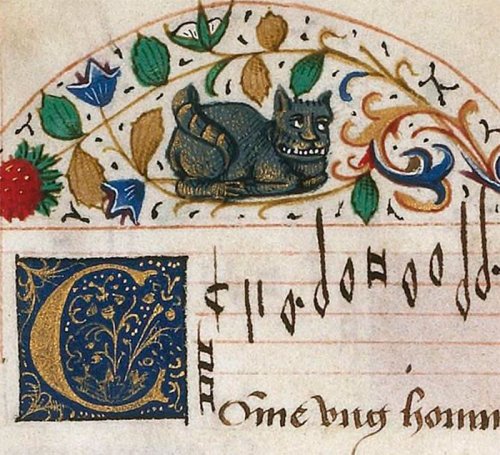 Com̃e vng homm